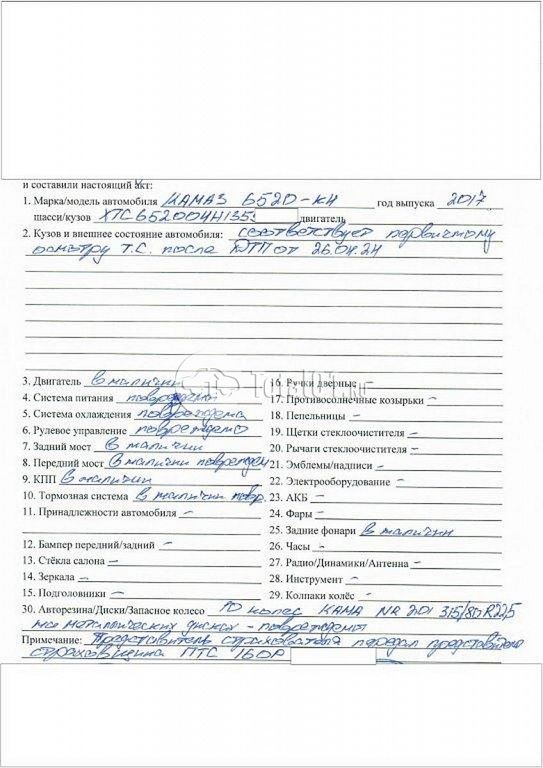 и составили настоящий акт:
1. Марка/модель автомобиля КАМАЗ 6520-К4 год выпуска 2017
шасси/кузов XTC652004H135 двигатель
2. Кузов и внешнее состояние автомобиля: соответствует первичному
осмотру Т.С. после ДТП от 26.04.24
3. Двигатель в наличии
4. Система питания повреждено
5. Система охлаждения повреждена
6. Рулевое управление повреждено
7. Задний мост в наличии
8. Передний мост в наличии поврежден
9. КПП в наличии
10. Тормозная система в наличии повр.
11. Принадлежности автомобиля –
12. Бампер передний/задний –
13. Стёкла салона –
14. Зеркала –
15. Подголовники –
Total01.ru
16. Ручки дверные
17. Противосолнечные козырьки –
18. Пепельницы –
19. Щетки стеклоочистителя –
20. Рычаги стеклоочистителя –
21. Эмблемы/надписи –
22. Электрооборудование –
23. АКБ –
24. Фары –
25. Задние фонари в наличии
26. Часы –
27. Радио/Динамики/Антенна –
28. Инструмент –
29. Колпаки колёс –
30. Авторезина/Диски/Запасное колесо 10 колес КАМА NR 201 315/80 R22,5
на металлических дисках - повреждены
Примечание: Представитель страхователя передал представителю
страховщика ПТС 160Р